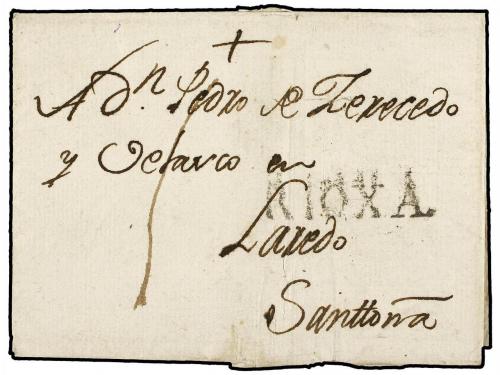 +
A Dn. Pedro de Zerecedo
y Velarco en
RIOXA
Laredo
Santtoña